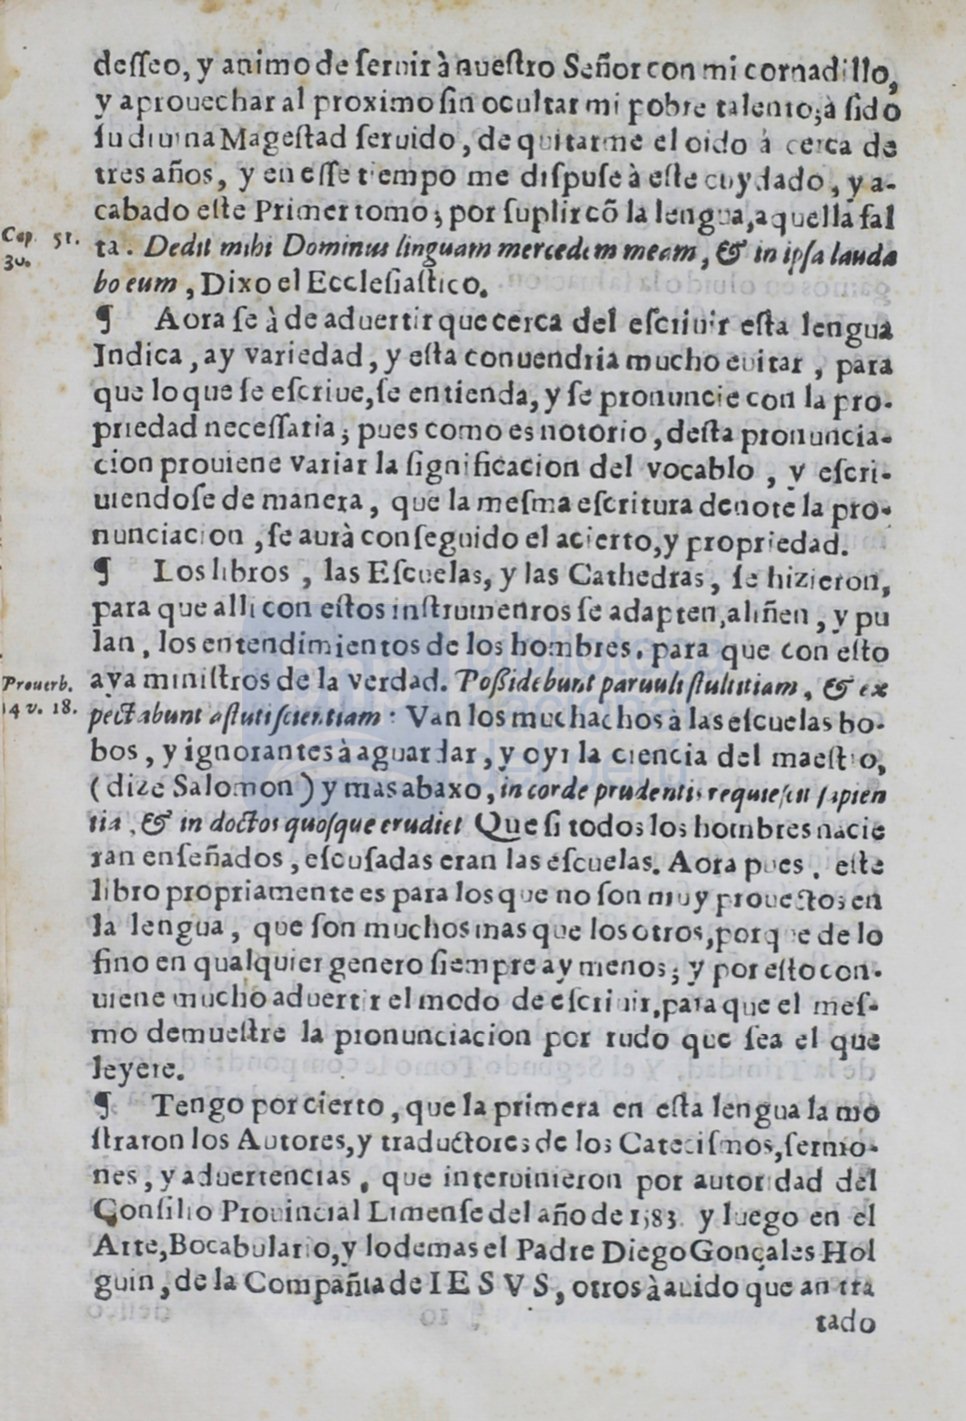 desseo, y animo de seruir à nuestro Señor con mi cornadillo,
y aprouechar al proximo sin ocultar mi pobre talento; à sido
su diuina Magestad seruido, de quitarme el oido à cerca de
tres años, y en esse tiempo me dispuse à este cuydado, y a-
cabado este Primer tomo; por suplir cõ la lengua, aquella fal
Cap. 51.
30.
ta. Dedit mihi Dominus linguam mercedem meam, & in ipsa lauda
bo eum, Dixo el Ecclesiastico.
¶ Aora se à de aduertir que cerca del escriuir esta lengua
Indica, ay variedad, y esta conuendria mucho euitar, para
que lo que se escriue, se entienda, y se pronuncie con la pro-
priedad necessaria; pues como es notorio, desta pronuncia-
cion prouiene variar la significacion del vocablo, y escri-
uiendose de manera, que la mesma escritura denote la pro-
nunciacion, se aurà conseguido el acierto, y propriedad.
¶ Los libros, las Escuelas, y las Cathedras, se hizieron,
para que alli con estos instrumentos se adapten, aliñen, y pu
lan, los entendimientos de los hombres, para que con esto
Prouerb.
14 v. 18.
aya ministros de la verdad. Possidebunt paruuli stultitiam, & ex
pectabunt astuti scientiam: Van los muchachos à las escuelas bo-
bos, y ignorantes à aguardar, y oyr la ciencia del maestro,
(dize Salomon) y mas abaxo, in corde prudentis requiescit sapien
tia, & in doctos quosque erudiet Que si todos los hombres nacie
ran enseñados, escusadas eran las escuelas. Aora pues, este
libro propriamente es para los que no son muy prouectos en
la lengua, que son muchos mas que los otros, porque de lo
fino en qualquier genero siempre ay menos; y por esto con-
uiene mucho aduertir el modo de escriuir, para que el mes-
mo demuestre la pronunciacion por rudo que sea el que
leyere.
¶ Tengo por cierto, que la primera en esta lengua la mo
straron los Autores, y traductores de los Catecismos, sermo-
nes, y aduertencias, que interuinieron por autoridad del
Consilio Prouincial Limense del año de 1583. y luego en el
Arte, Bocabulario, y lo demas el Padre Diego Gonçales Hol
guin, de la Compañia de IESVS, otros à auido que an tra
tado